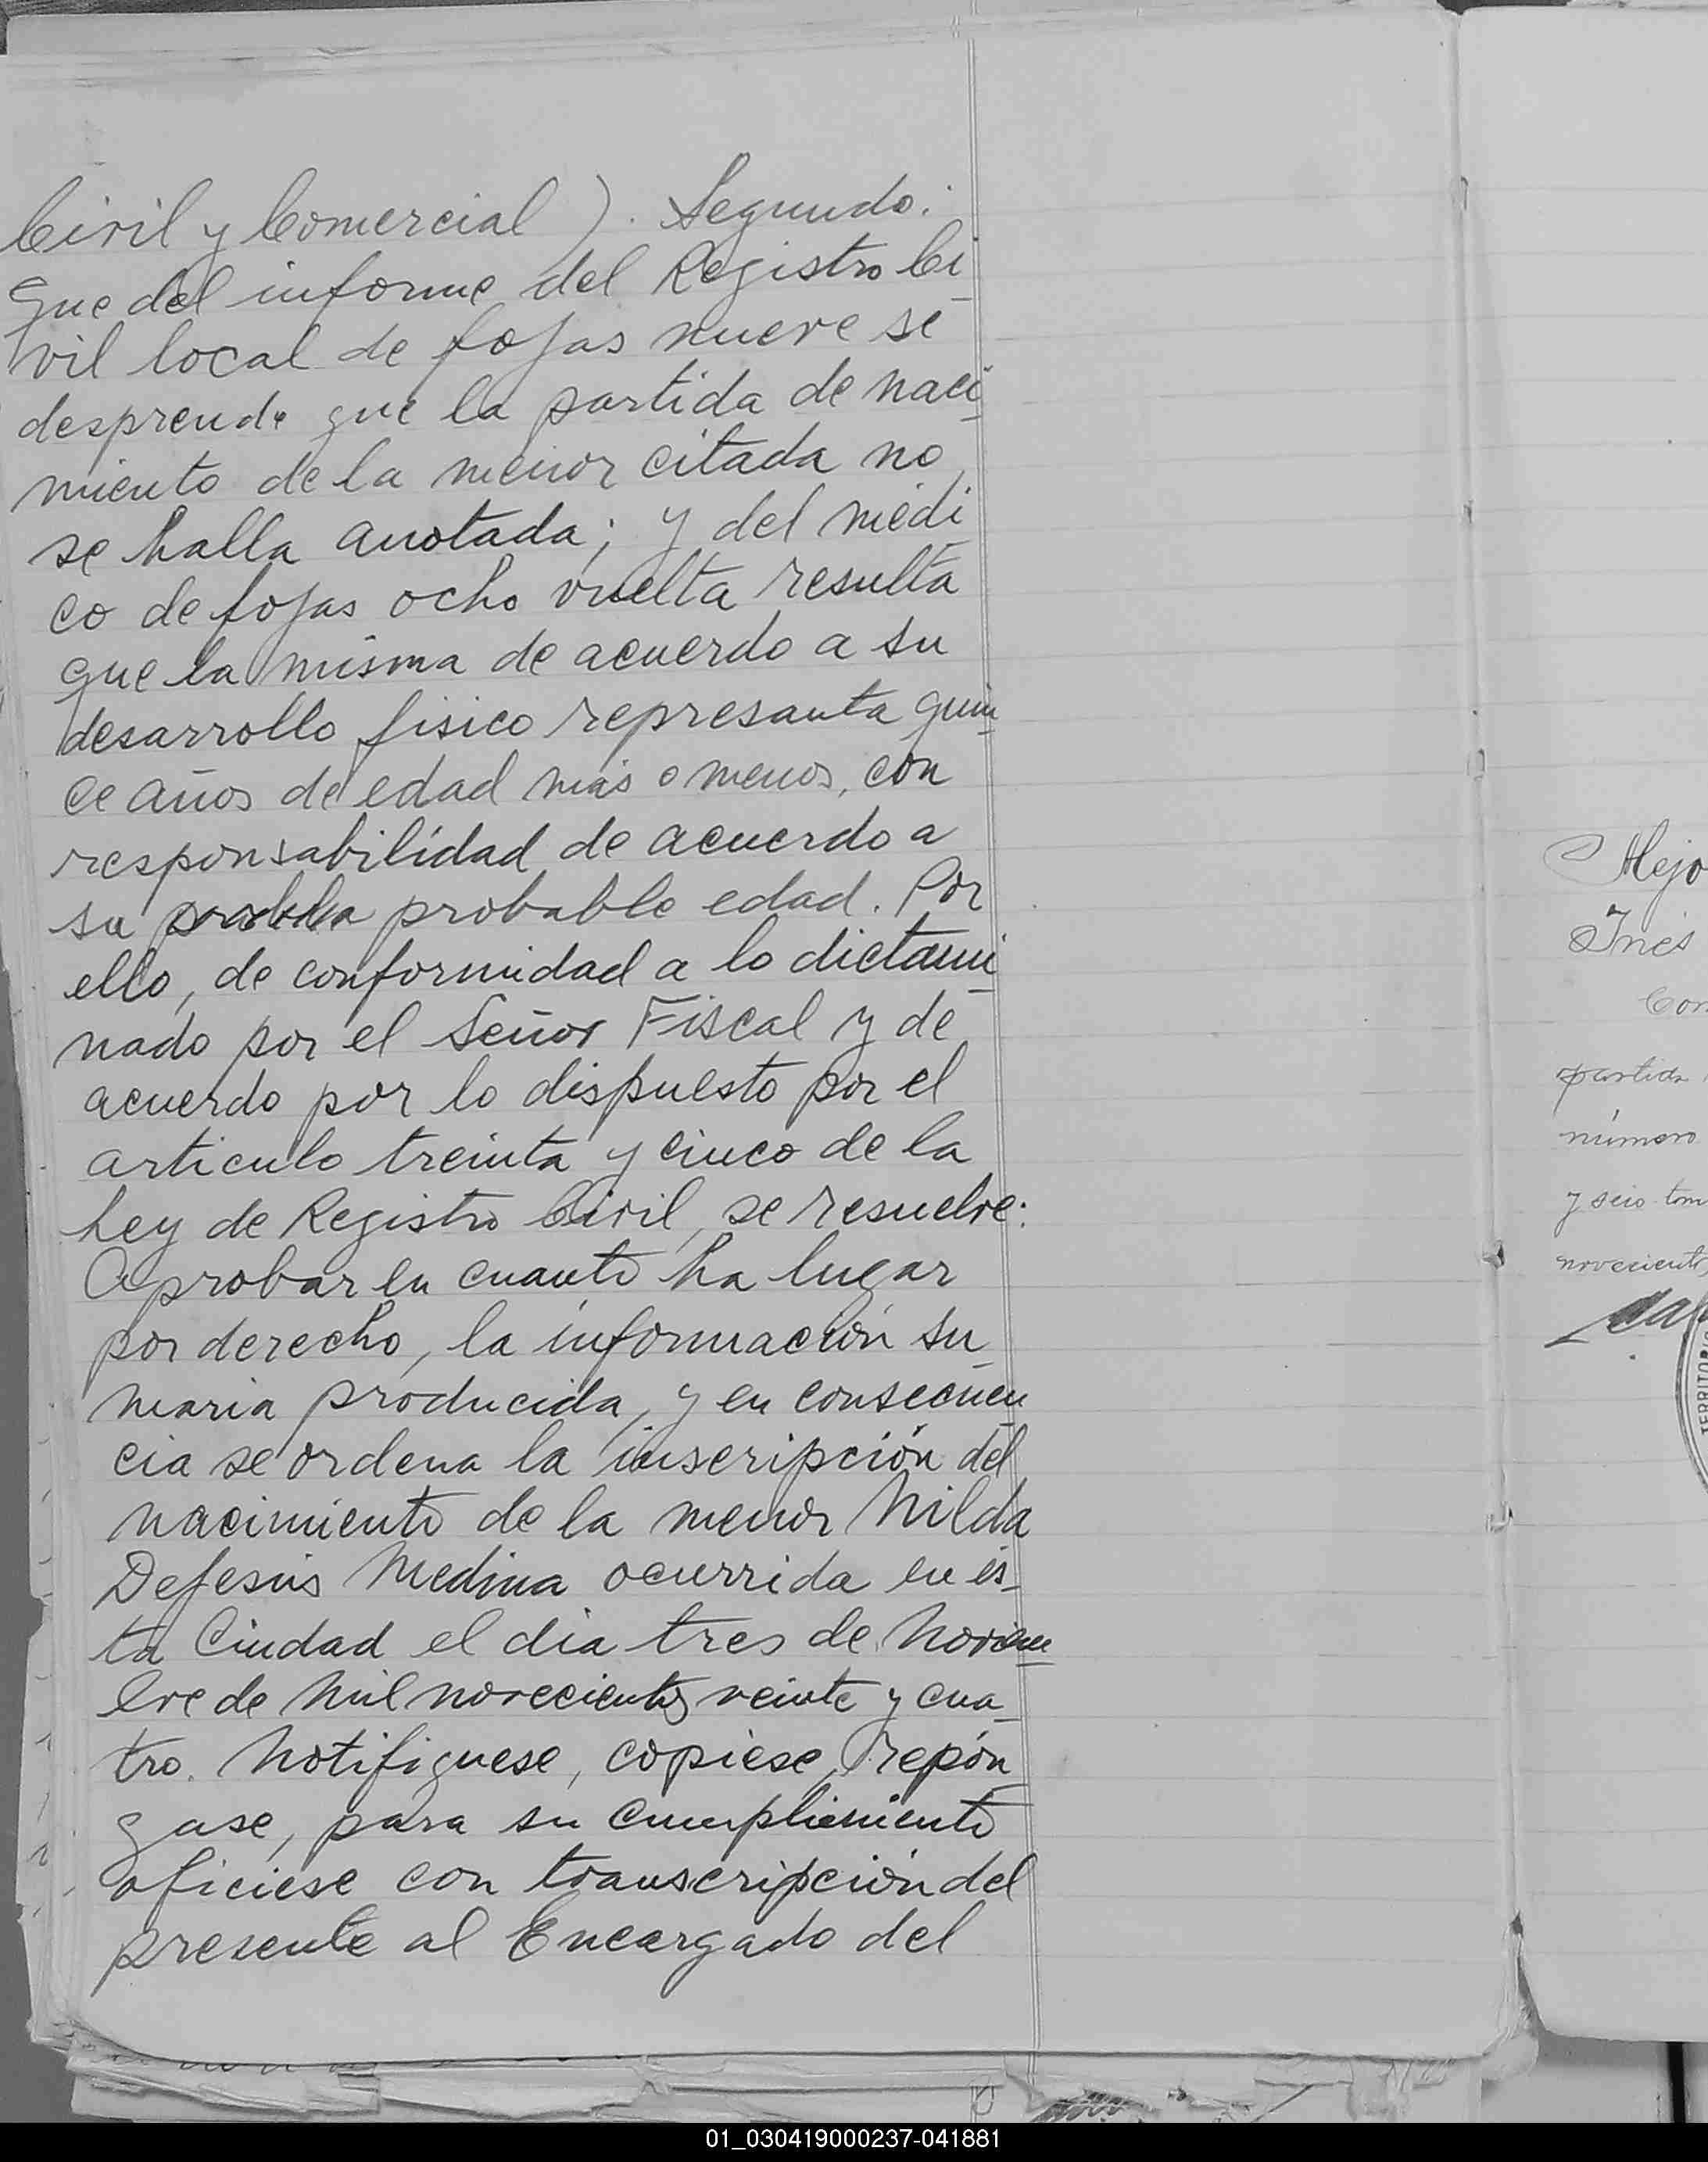 Civil y Comercial ). Segundo:
Que del informe del Registro Ci
vil local de fojas nueve se
desprende que la partida de naci
miento de la menor citada no
se halla anotada; y del médi
co de fojas ocho vuelta resulta
que la misma de acuerdo a su
desarrollo fisico represanta quin
ce años de edad más o menos, con
responsabilidad de acuerdo a
su probable edad. Por
ello, de conformidad a lo dictami
nado por el Señor Fiscal y de
acuerdo por lo dispuesto por el
articulo treinta y cinco de la
Ley de Registro Civil, se resuelve:
Aprobar en cuanto ha lugar
por derecho, la información su
maria producida, y en consecuen
cia se ordena la inscripción del
nacimiento de la menor Nilda
Dejesús Medina ocurrida en és
ta Ciudad el dia tres de Noviem
bre de mil novecientos veinte y cua
tro. Notifiquese, copiese, repón
gase, para su cumplimiento
oficiese con transcripción del
presente al Encargado del
Alejo
Inés
Con
partida
número
y seis tom
noveciento
TERRITORIO
01_030419000237-041881